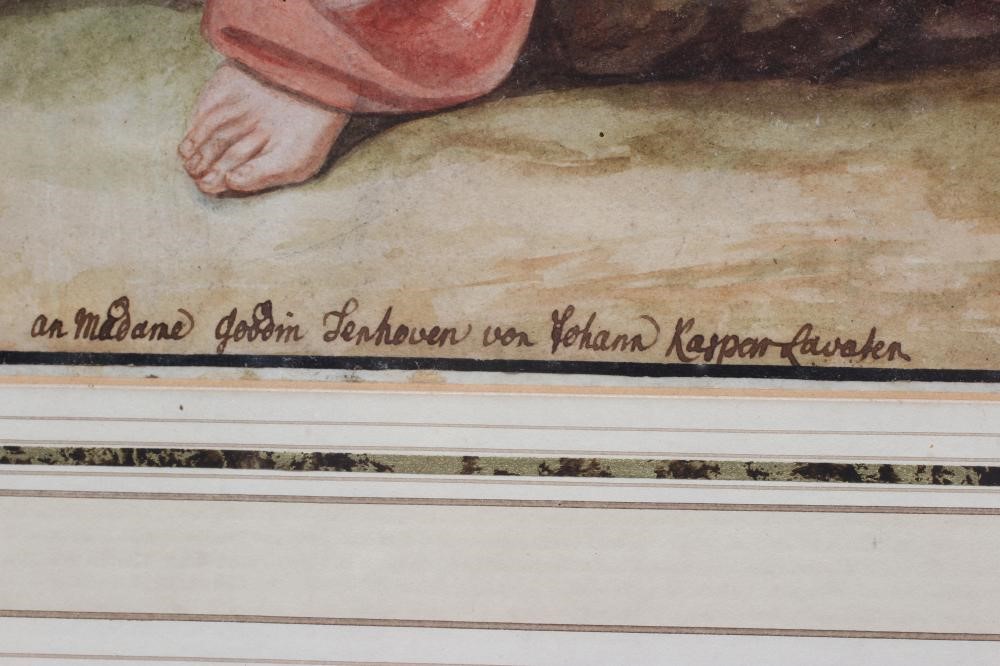 an Madame Goddin Senhoven von Johann Kaspar Lavater